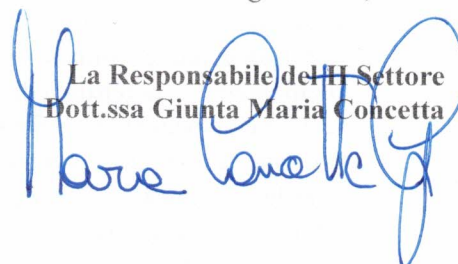 La Responsabile del II Settore
Dott.ssa Giunta Maria Concetta
Maria